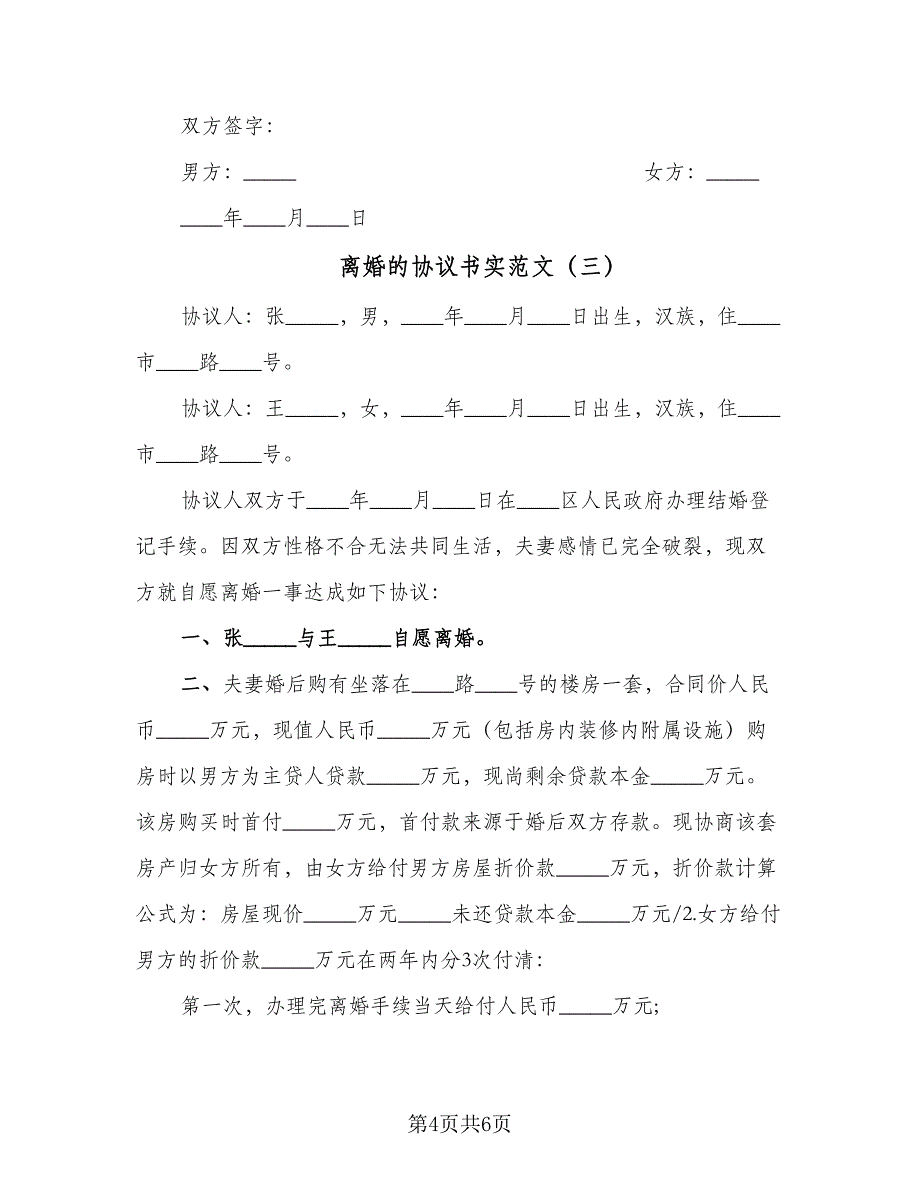 双方签字：
男方：_____ 女方：_____
____年____月____日
离婚的协议书实范文（三）
协议人：张_____，男，____年____月____日出生，汉族，住____
市____路____号。
协议人：王_____，女，____年____月____日出生，汉族，住____
市____路____号。
协议人双方于____年____月____日在____区人民政府办理结婚登
记手续。因双方性格不合无法共同生活，夫妻感情已完全破裂，现双
方就自愿离婚一事达成如下协议：
一、张_____与王_____自愿离婚。
二、夫妻婚后购有坐落在____路____号的楼房一套，合同价人民
币_____万元，现值人民币_____万元（包括房内装修内附属设施）购
房时以男方为主贷人贷款_____万元，现尚剩余贷款本金_____万元。
该房购买时首付_____万元，首付款来源于婚后双方存款。现协商该套
房产归女方所有，由女方给付男方房屋折价款_____万元，折价款计算
公式为：房屋现价_____万元_____未还贷款本金_____万元/2.女方给付
男方的折价款_____万元在两年内分3次付清：
第一次，办理完离婚手续当天给付人民币_____万元;
第4页共6页